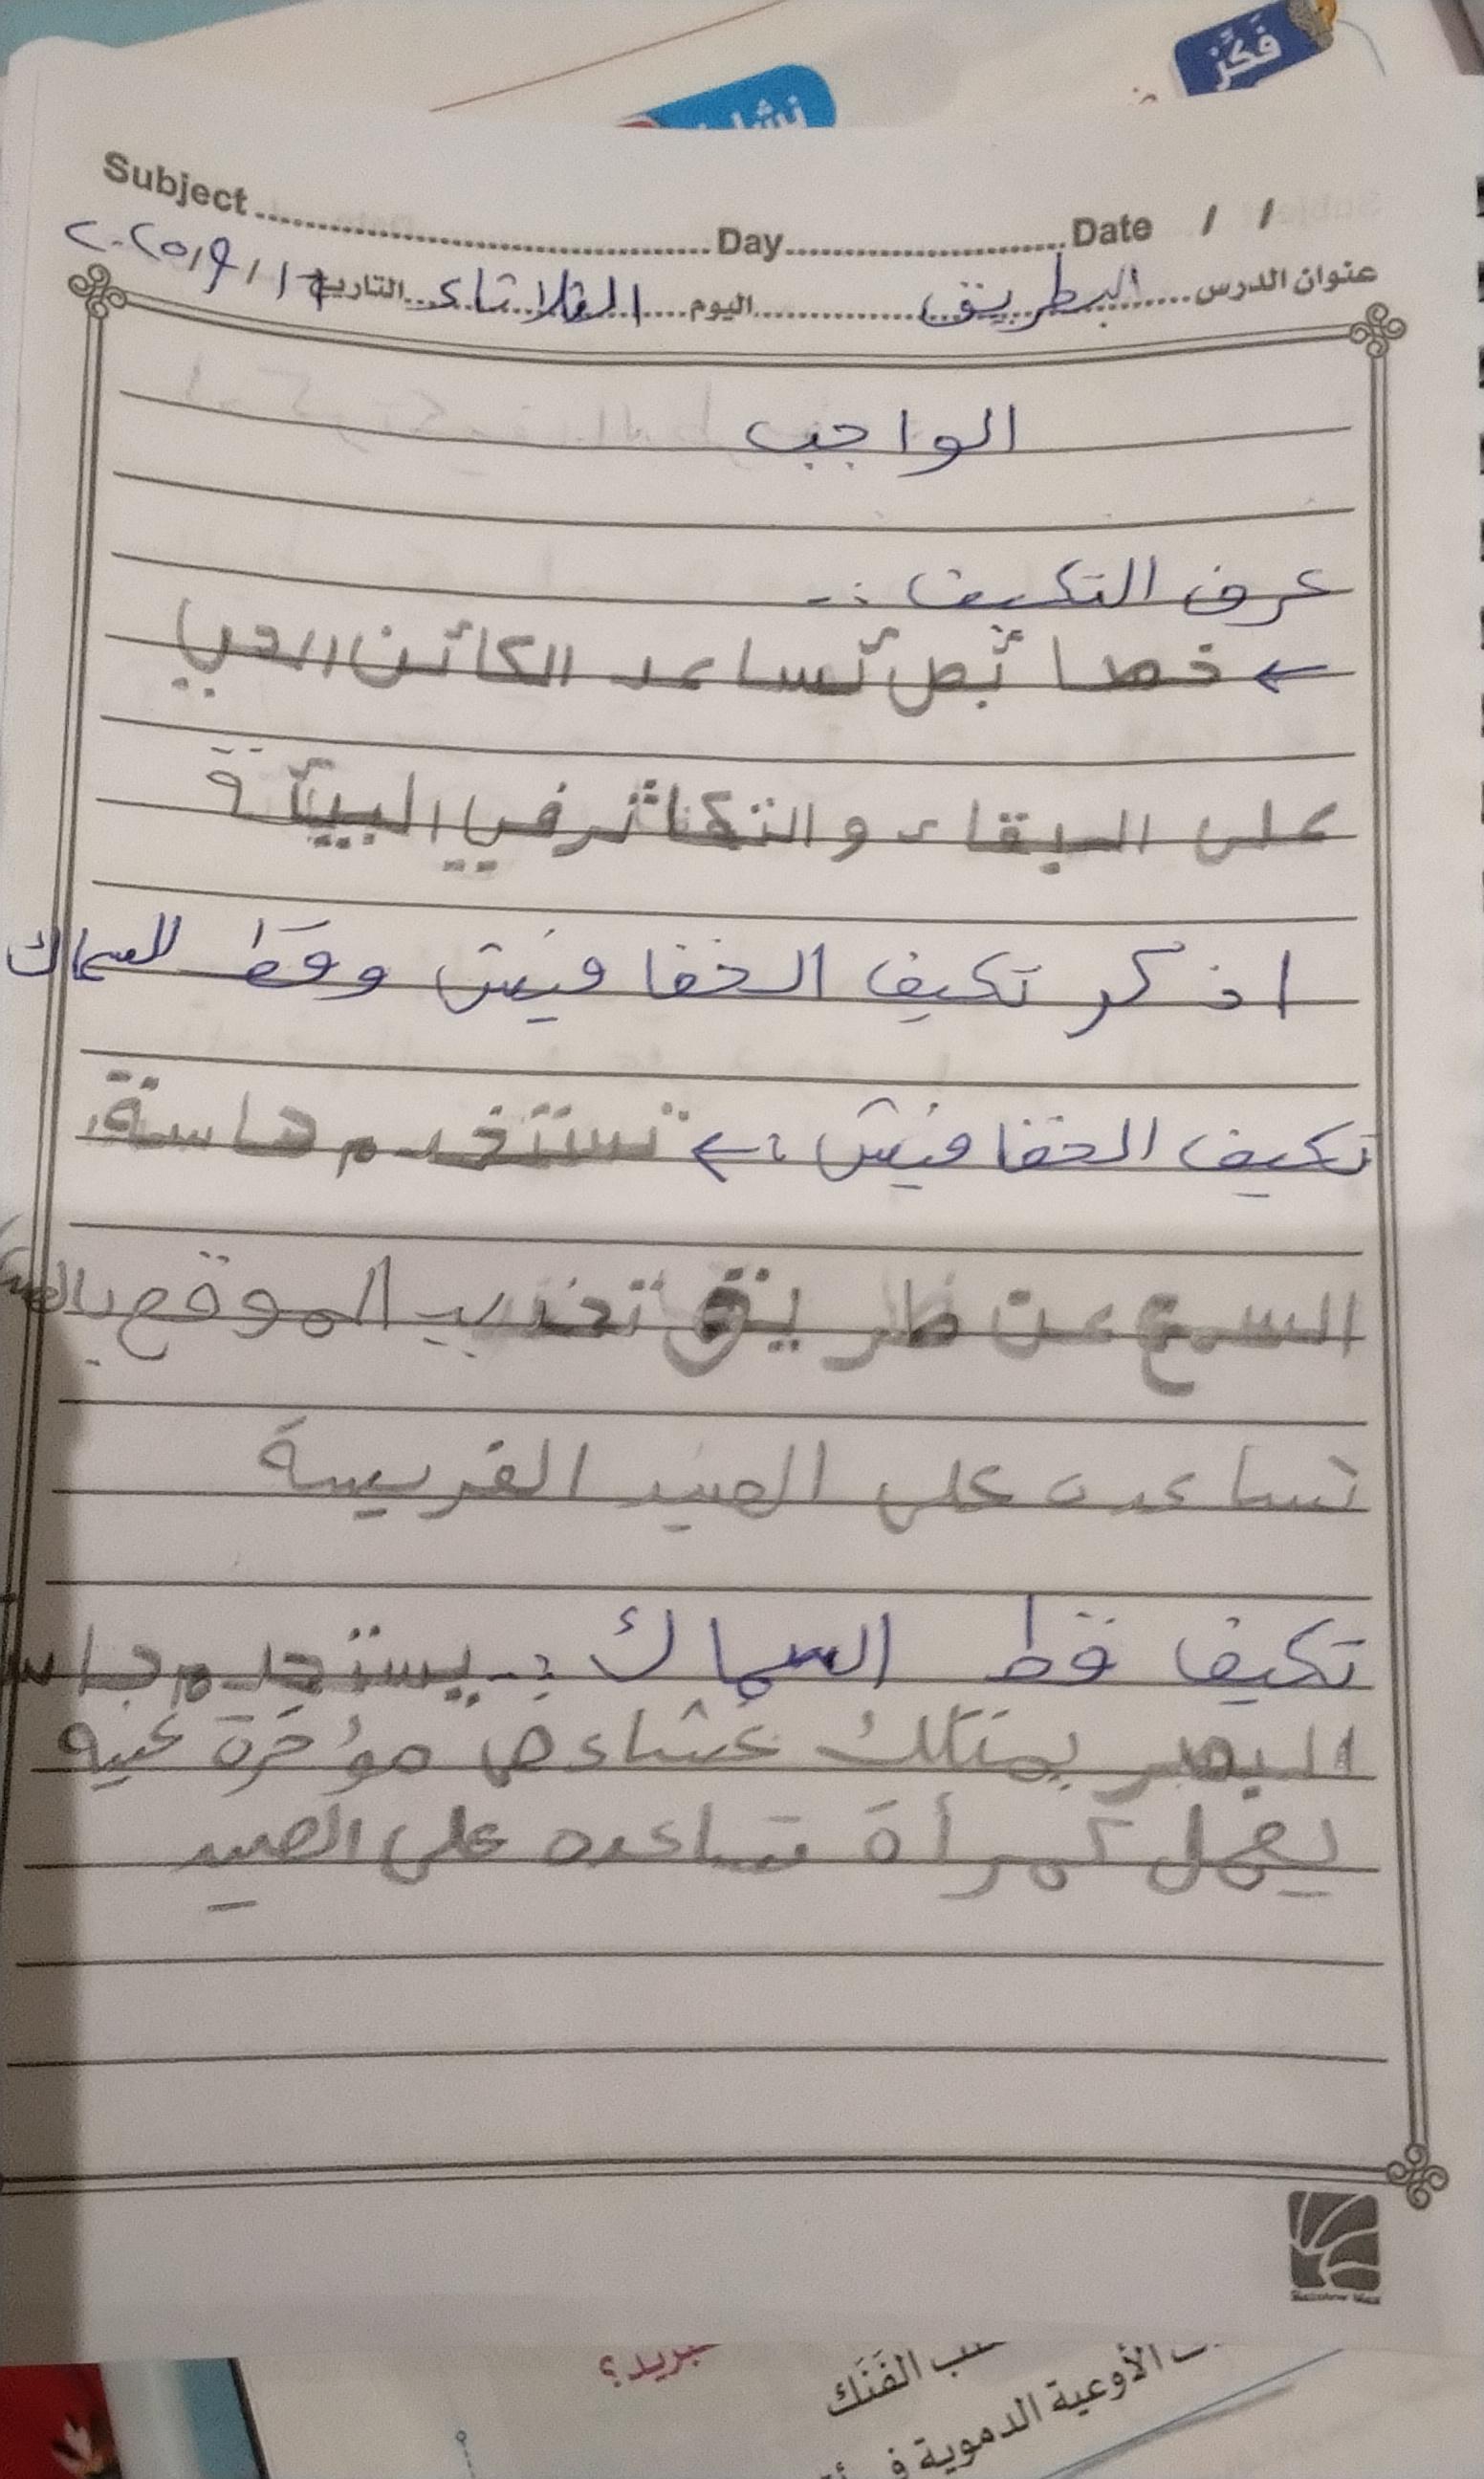 فَكِّرْ
نشا
Subject Day Date / /
عنوان الدرس البطريق اليوم الثلاثاء التاريخ ١٦/٩/٢٠٢٥
الواجب
عرف التكيف :-
← خصائص تساعد الكائن الحي
على البقاء والتكاثر في البيئة
اذكر تكيف الخفافيش وقط السماك
تكيف الخفافيش :← تستخدم حاسة
السمع عن طريق تحديد الموقع
تساعده على الصيد الفريسة
تكيف قط السماك :- يستخدم حاس
البصر يمتلك غشاء مؤخرة عنيه
يعمل كمرأة تساعده على الصيد
بريد؟
الفَنَك
الأوعية الدموية في